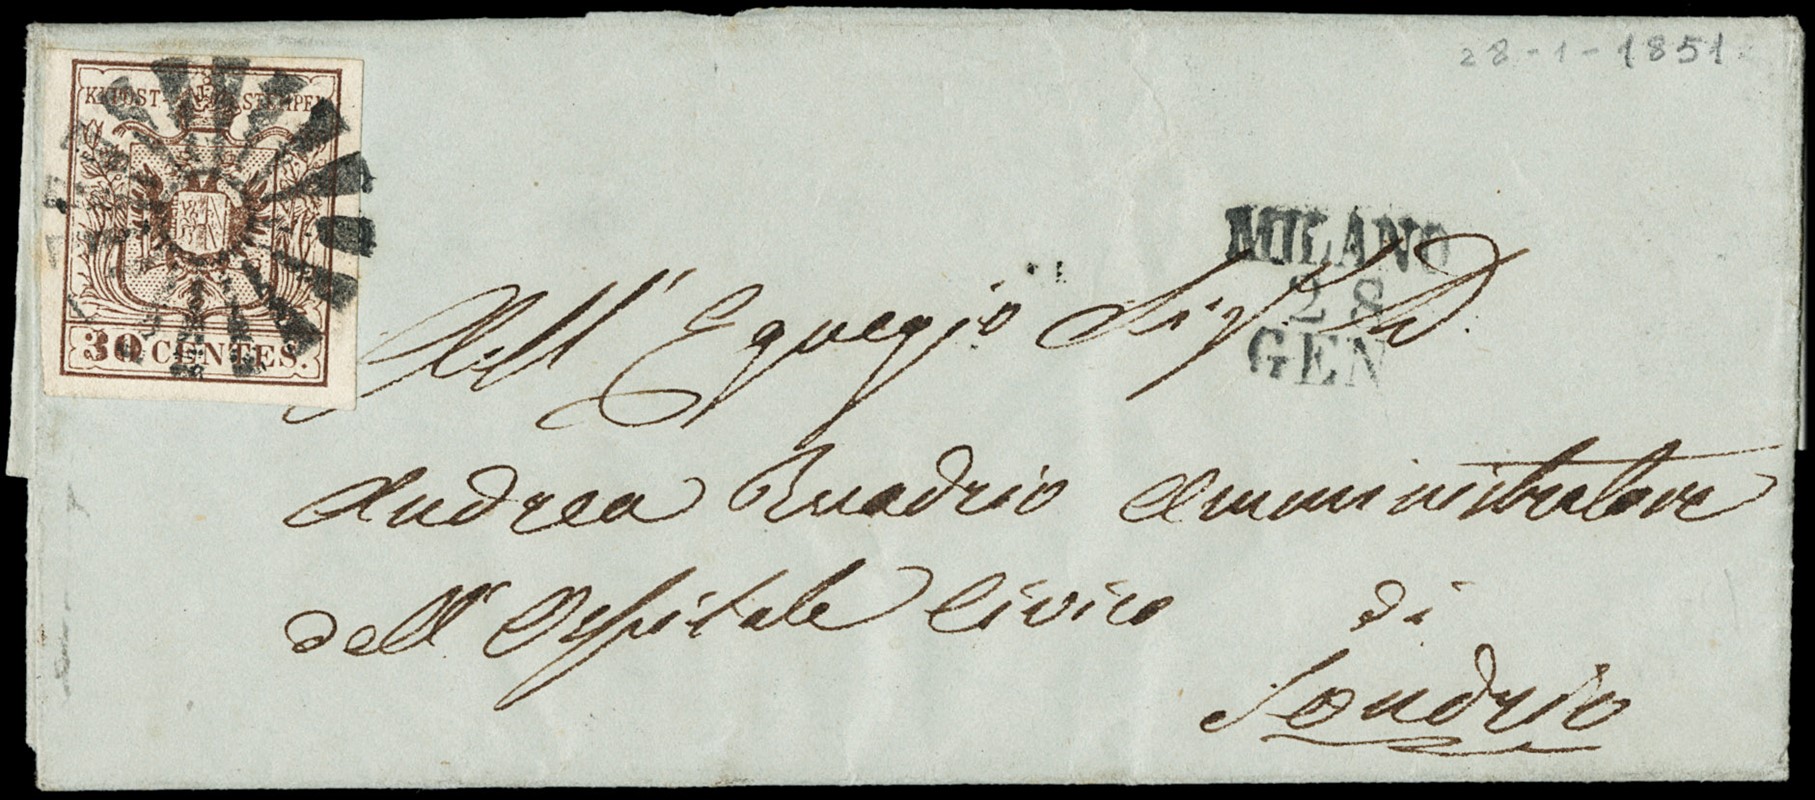 28-1-1851
KK POST-STEMPEL
30 CENTES.
MILANO
28
GEN
All' Egregio Sig.
Andrea Quadrio Amministratore
dell' Ospitale Civico di
Sondrio